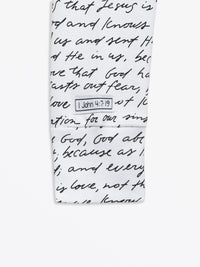 that Jesus is
od and Knows
us and sent H
d He in us, bec
ve that God ha
asts out fear,
love ot k
1 John 4:7-19
ation, for our sins
God, God ab
, because as
d, and every
is love, not th
Know